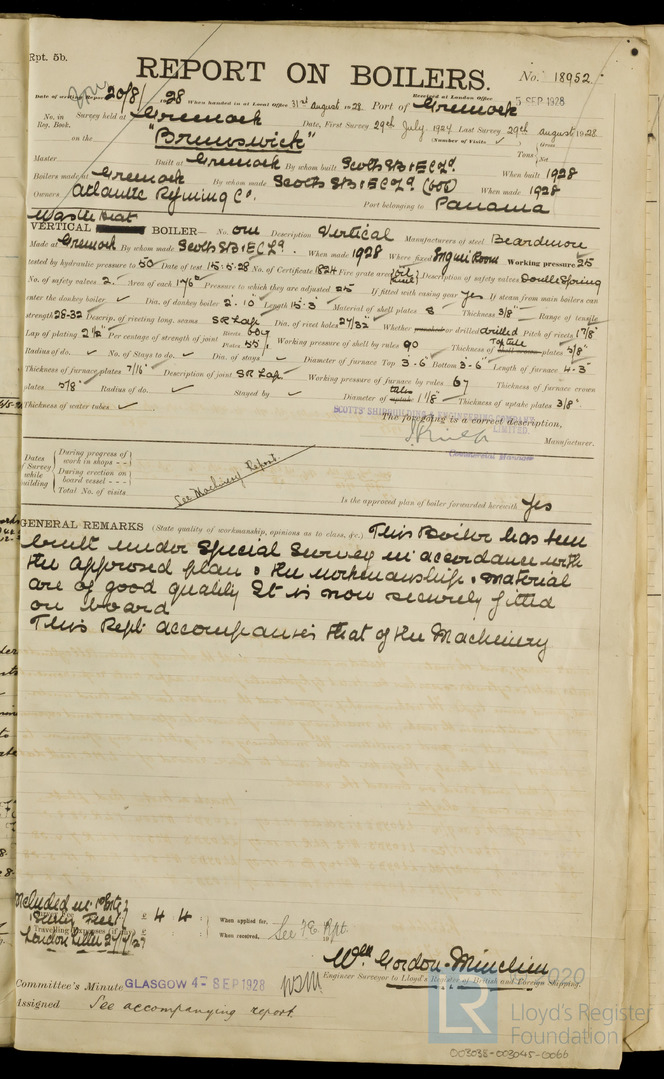 Rpt. 5b.
REPORT ON BOILERS.
No. 18952
Date of writing Report 20/8/1928 When handed in at Local Office 31st August 1928 Port of Greenock
Received at London Office 5 SEP 1928
No. in Reg. Book. Survey held at Greenock Date, First Survey 29th July, 1927 Last Survey 29th August 1928
(Number of Visits ✓)
on the "Brunswick" Tons Gross Net
Master Built at Greenock By whom built Scotts SB & E C Ld. When built 1928
Boilers made at Greenock By whom made Scotts SB & E C Ld. When made 1928
Owners Atlantic Refining Co. Port belonging to Panama
Waste Heat
VERTICAL BOILER— No. One Description Vertical Manufacturers of steel Beardmore
Made at Greenock By whom made Scotts SB & E C Ld. When made 1928 Where fixed Engine Room Working pressure 25
tested by hydraulic pressure to 50 Date of test 15.5.28 No. of Certificate 1824 Fire grate area Oil Fuel Description of safety valves Double Spring
No. of safety valves 2 Area of each Pressure to which they are adjusted 25 If fitted with easing gear Yes If steam from main boilers can
enter the donkey boiler ✓ Dia. of donkey boiler Length 15-3 Material of shell plates S Thickness 3/8" Range of tensile
strength 28-32 Descrip. of riveting long. seams SR Lap Dia. of rivet holes 27/32" Whether punched or drilled drilled Pitch of rivets 1 7/8"
Lap of plating 2 1/2" Per centage of strength of joint Rivets Plates 55 Working pressure of shell by rules 90 Thickness of Top tube plates 5/8"
Radius of do. ✓ No. of Stays to do. ✓ Dia. of stays ✓ Diameter of furnace Top 3-6" Bottom 3-6" Length of furnace 4-3"
Thickness of furnace plates 7/16" Description of joint SR Lap Working pressure of furnace by rules 67 Thickness of furnace crown
plates 5/8" Radius of do. ✓ Stayed by ✓ Diameter of uptake tubes 1 1/8" Thickness of uptake plates 3/8"
Thickness of water tubes ✓
The foregoing is a correct description,
SCOTTS' SHIPBUILDING & ENGINEERING COMPANY LIMITED.
Manufacturer.
Commercial Manager
Dates of Survey while building
During progress of work in shops - -
During erection on board vessel - - -
Total No. of visits
See Machinery Report.
Is the approved plan of boiler forwarded herewith Yes
GENERAL REMARKS (State quality of workmanship, opinions as to class, &c.) This Boiler has been
built under Special Survey in accordance with
the approved plan & the workmanship & material
are of good quality It is now securely fitted
on board
This Rept. accompanies that of the Machinery
Included in
Survey Fee £ 4 . 4 :
Travelling Expenses (if any) £
London Letter
When applied for,
When received,
See F.E. Rpt.
Wm Gordon-Minchin
Engineer Surveyor to Lloyd's Register of British and Foreign Shipping.
Committee's Minute GLASGOW 4- SEP 1928
Assigned See accompanying report
2020
LR
Lloyd's Register
Foundation
003038-003045-0066